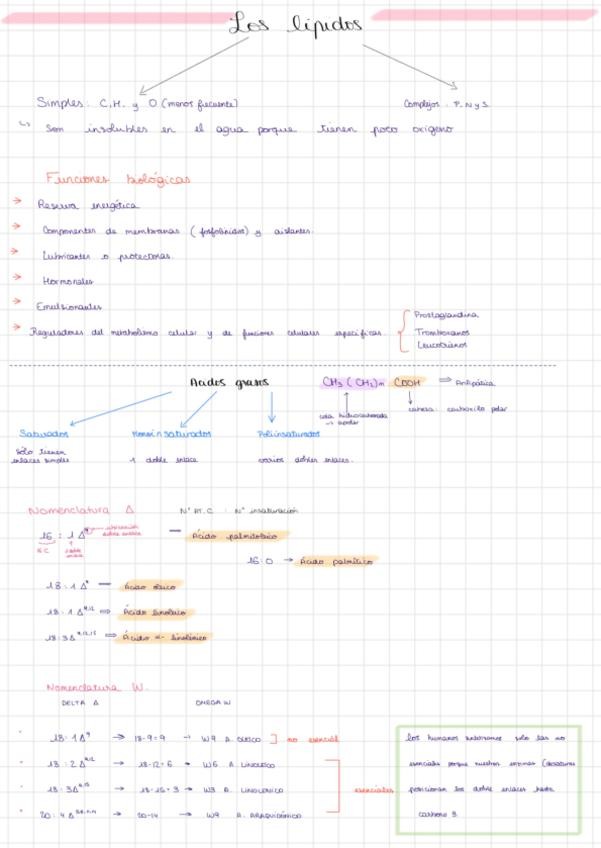 Los lípidos
Simples: C, H, y O (menos frecuente)
Complejos: P, N y S.
Son insolubles en el agua porque tienen poco oxigeno
Funciones biológicas
→ Reserva energética
→ Componentes de membranas (fosfolípidos) y aislantes.
→ Lubricantes o protectoras.
→ Hormonales
→ Emulsionantes
→ Reguladores del metabolismo celular y de funciones celulares específicas.
Prostaglandina
Tromboxanos
Leucotrianos
Acidos grasos
CH3 (CH2)n COOH ⇒ Antipática
cola hidrocarbonada → apolar
cabeza: carboxilo polar
Saturados
Monoinsaturados
Poliinsaturados
Sólo tienen
enlaces simples
1 doble enlace
varios dobles enlaces.
Nomenclatura Δ
Nº AT. C : Nº insaturación
16 : 1 Δ⁹ — Ácido palmitoleico
doble enlace
16:0 → Ácido palmítico
18:1 Δ⁹ — Ácido oleico
18:1 Δ⁹,¹² ⇒ Ácido linoleico
18:3 Δ⁹,¹²,¹⁵ ⇒ Ácido α- linolénico
Nomenclatura W.
DELTA Δ
OMEGA W
18:1 Δ⁹ → 18-9=9 → W9 A. OLEICO ] no esencial
18:2 Δ⁹,¹² → 18-12=6 → W6 A. LINOLEICO
18:3 Δ → 18-15=3 → W3 A. LINOLENICO
esenciales
20:4 Δ → 20-14 → W9 A. ARAQUIDÓNICO
los humanos sintetizamos solo las no
esenciales porque nuestras enzimas (desaturasas
posicionan los doble enlaces hasta
carbono 9.